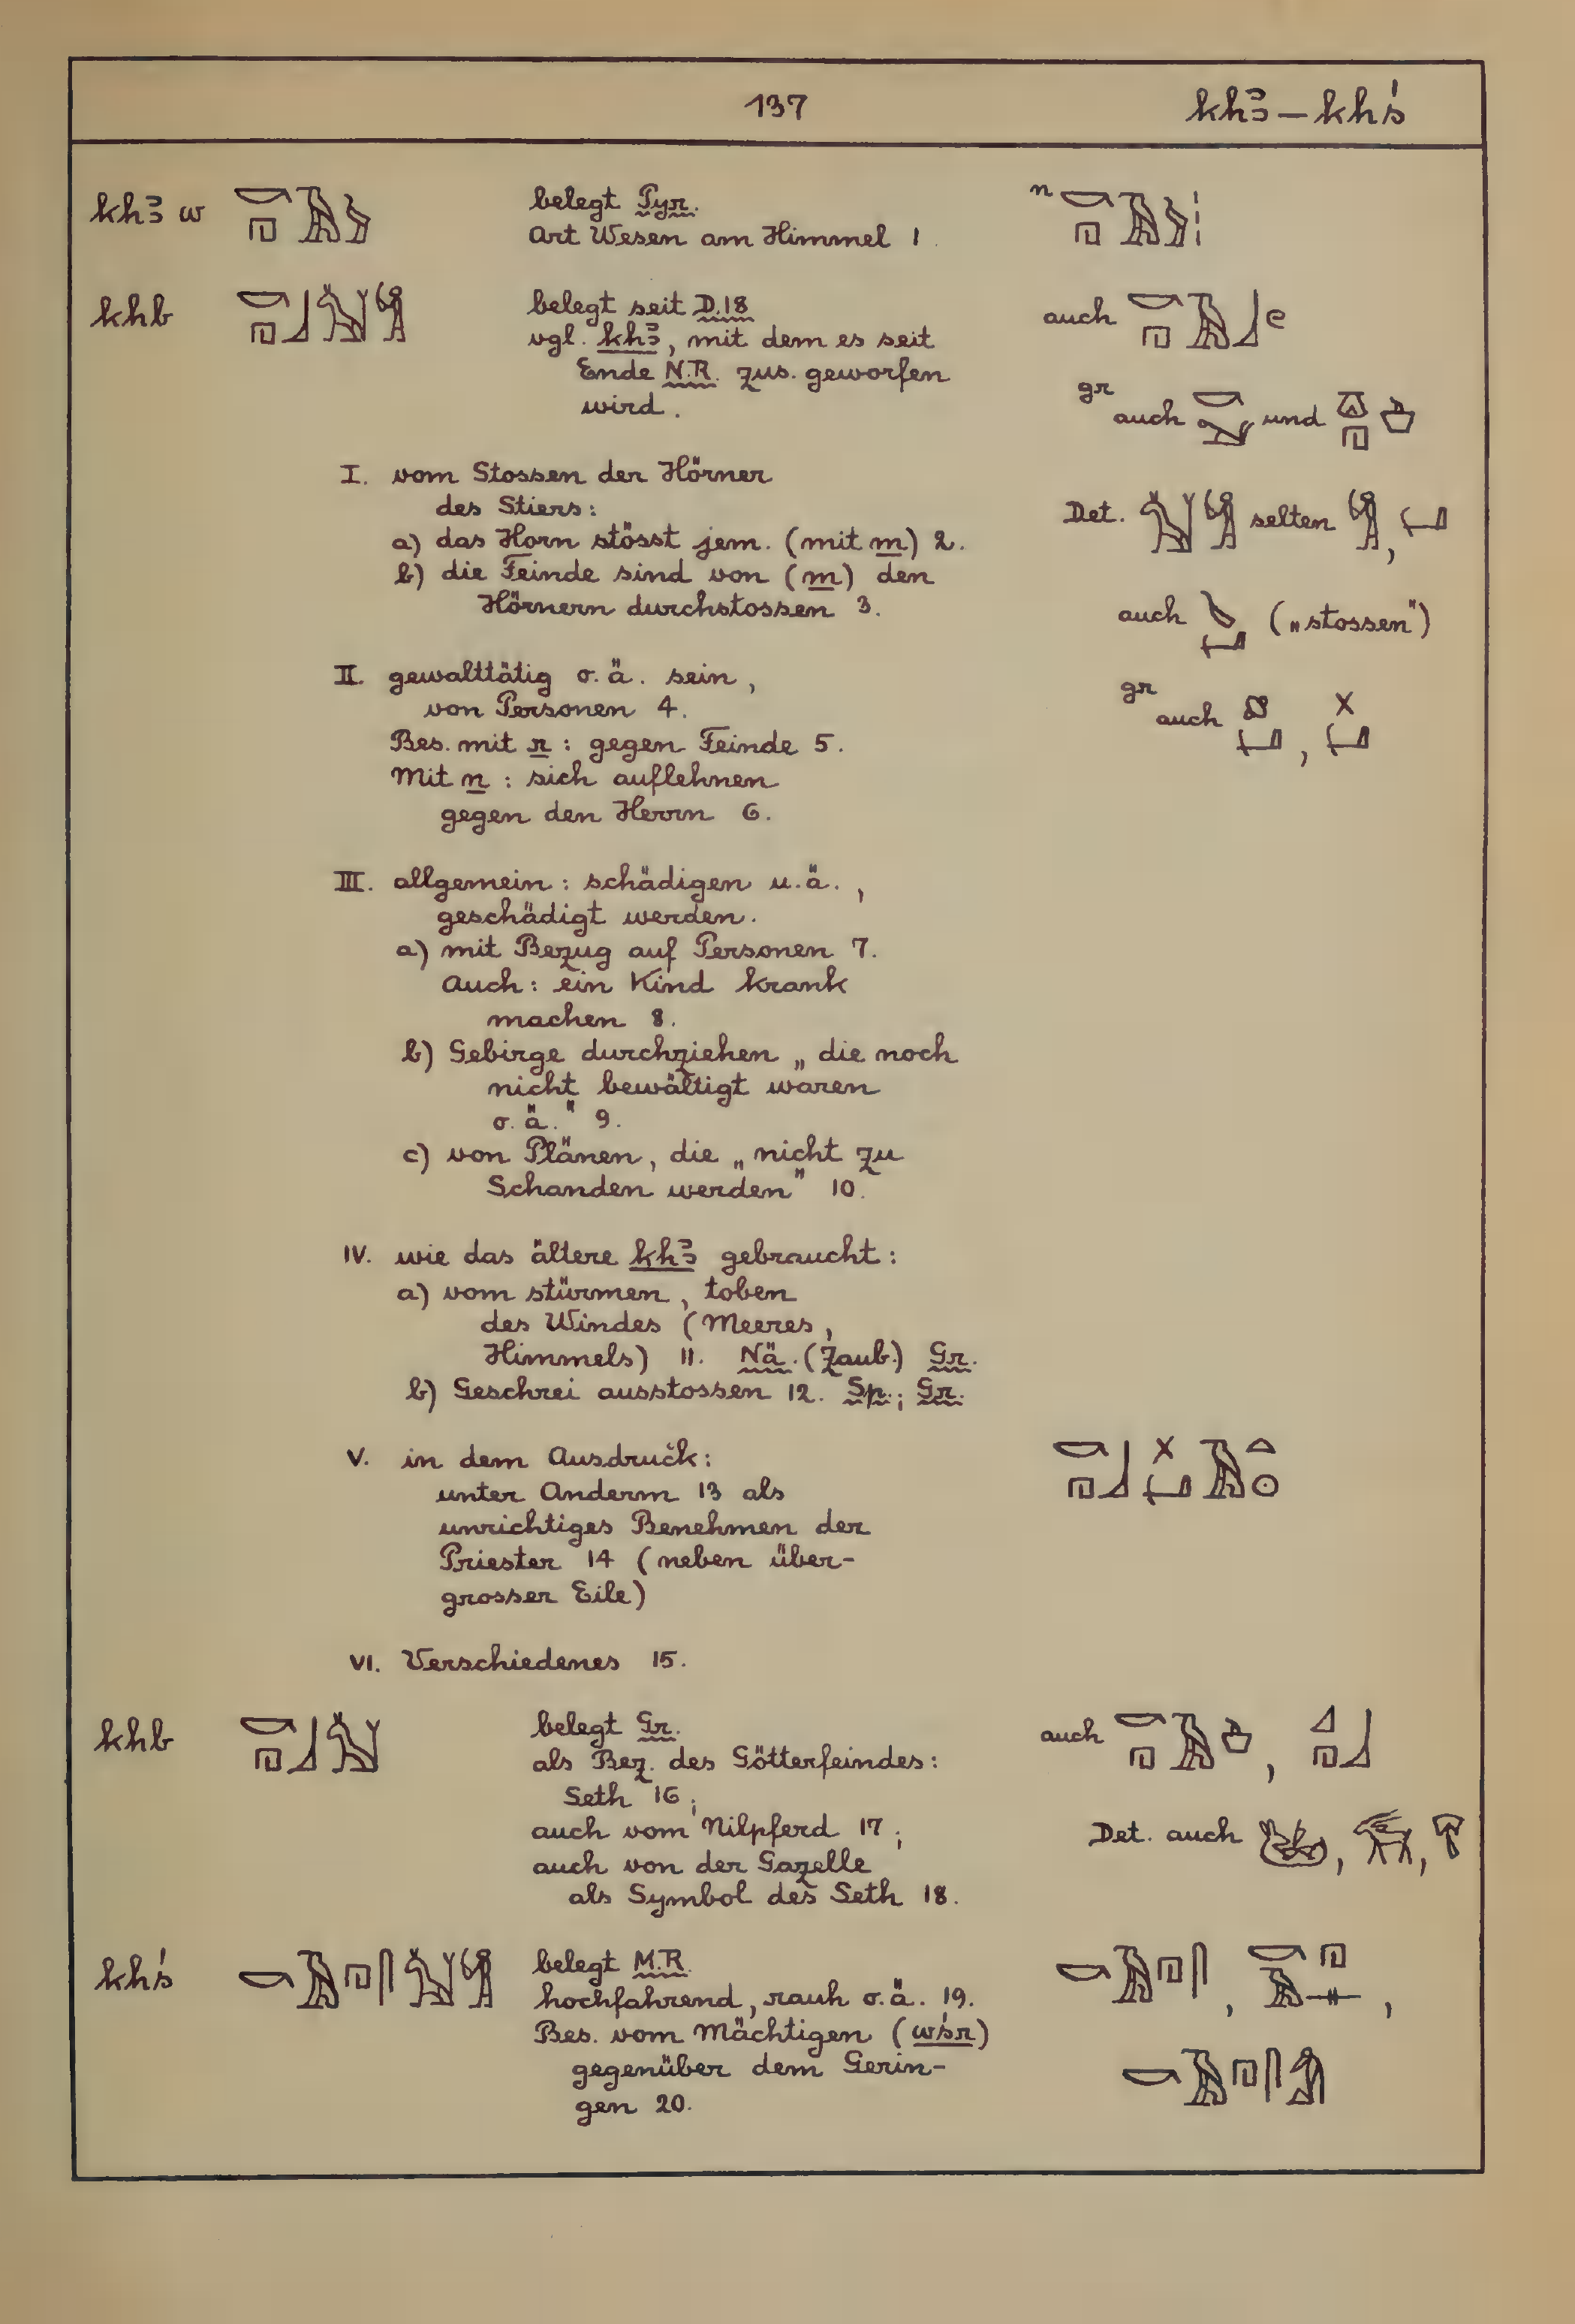 137 khꜣ – khś
khꜣw belegt Pyr. n
Art Wesen am Himmel 1
khb belegt seit D.18 auch
vgl. khꜣ, mit dem es seit
Ende N.R. zus. geworfen gr
wird. auch und
I. vom Stossen der Hörner
des Stiers: Det. selten ,
a) das Horn stösst jem. (mit m) 2.
b) die Feinde sind von (m) den
Hörnern durchstossen 3. auch („stossen")
II. gewalttätig o.ä. sein, gr
von Personen 4. auch ,
Bes. mit r: gegen Feinde 5.
Mit n: sich auflehnen
gegen den Herrn 6.
III. allgemein: schädigen u.ä.,
geschädigt werden.
a) mit Bezug auf Personen 7.
Auch: ein Kind krank
machen 8.
b) Gebirge durchziehen „die noch
nicht bewältigt waren
o.ä." 9.
c) von Plänen, die „nicht zu
Schanden werden" 10.
IV. wie das ältere khꜣ gebraucht:
a) vom stürmen, toben
des Windes (Meeres,
Himmels) 11. Nä. (Zaub.) Gr.
b) Geschrei ausstossen 12. Sp.; Gr.
V. in dem Ausdruck:
unter Anderm 13 als
unrichtiges Benehmen der
Priester 14 (neben über-
grosser Eile)
VI. Verschiedenes 15.
khb belegt Gr. auch ,
als Bez. des Götterfeindes:
Seth 16;
auch vom Nilpferd 17; Det. auch , ,
auch von der Gazelle
als Symbol des Seth 18.
khś belegt M.R. , ,
hochfahrend, rauh o.ä. 19.
Bes. vom Mächtigen (wśr)
gegenüber dem Gerin-
gen 20.